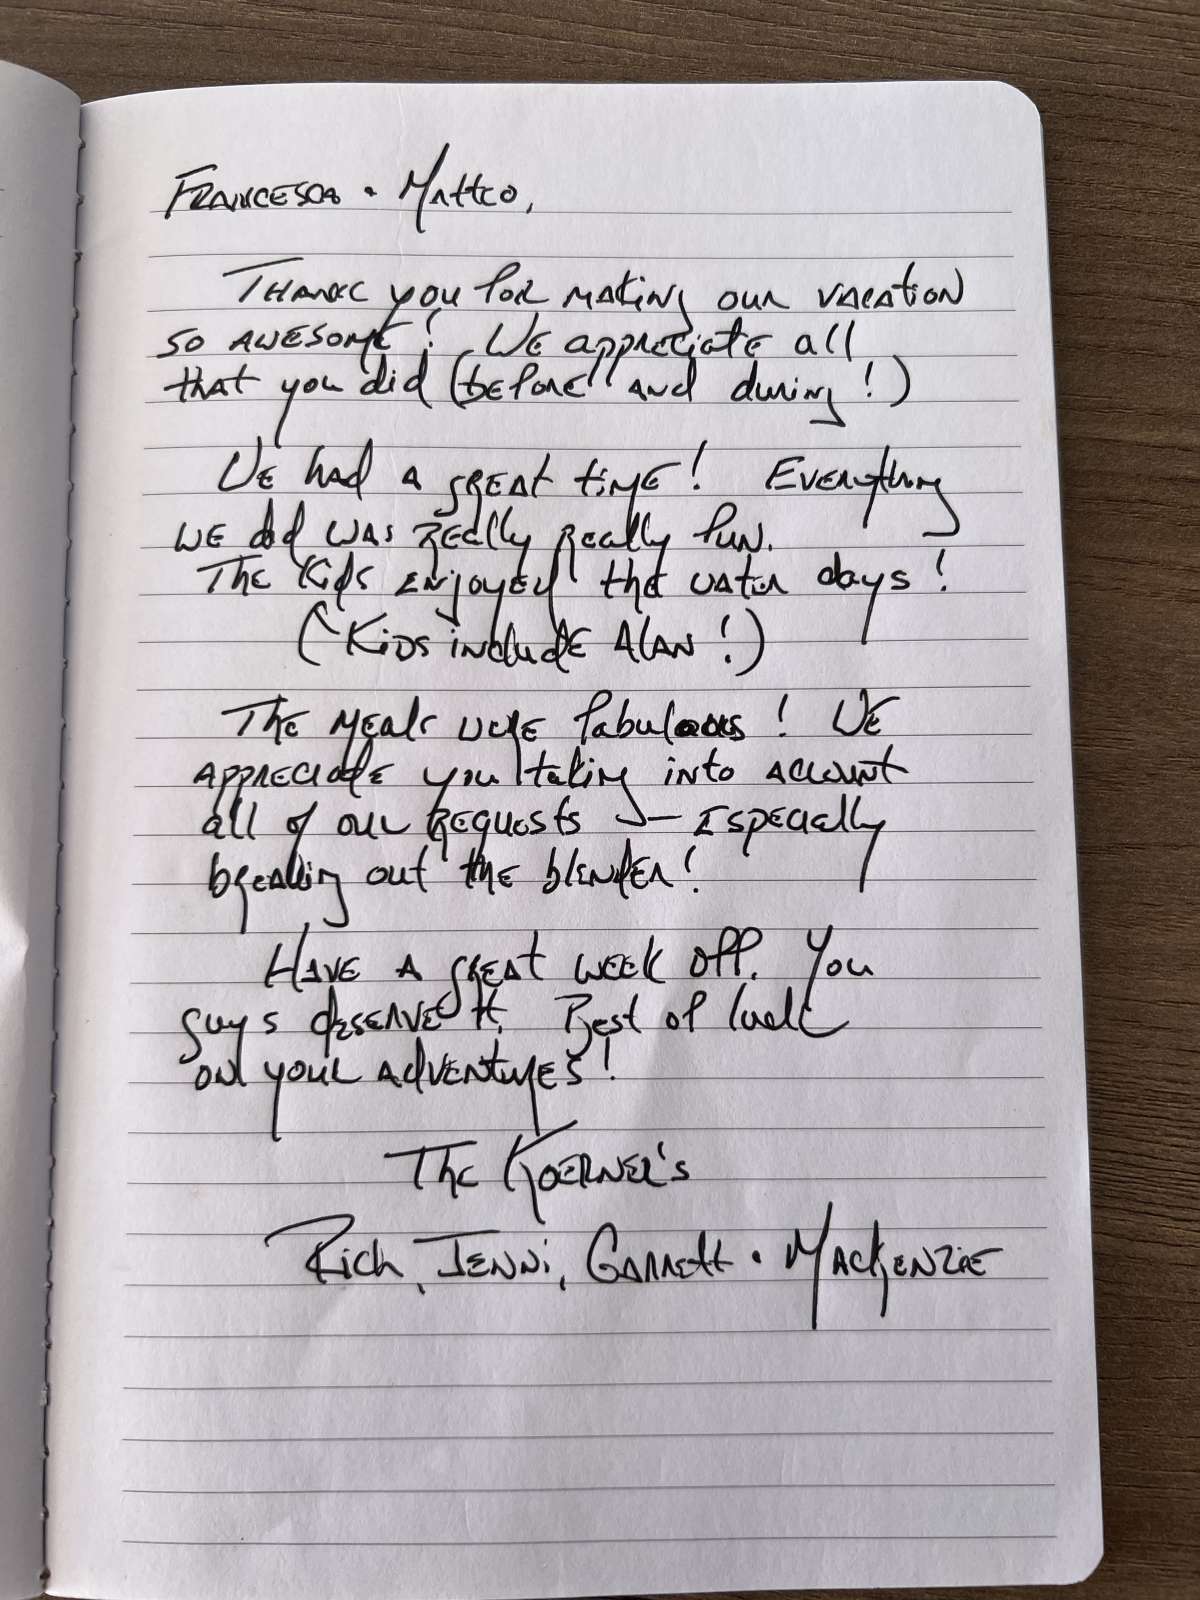 Francesca • Matteo,
Thank you for making our vacation
so awesome! We appreciate all
that you did (before and during!)
We had a great time! Everything
we did was really really fun.
The kids enjoyed the water days!
(^Kids include Alan!)
The meals were fabulous! We
appreciate you taking into account
all of our requests — Especially
breaking out the blender!
Have a great week off. You
guys deserve it. Best of luck
on your adventures!
The Koerner's
Rich, Jenni, Garrett • Mackenzie